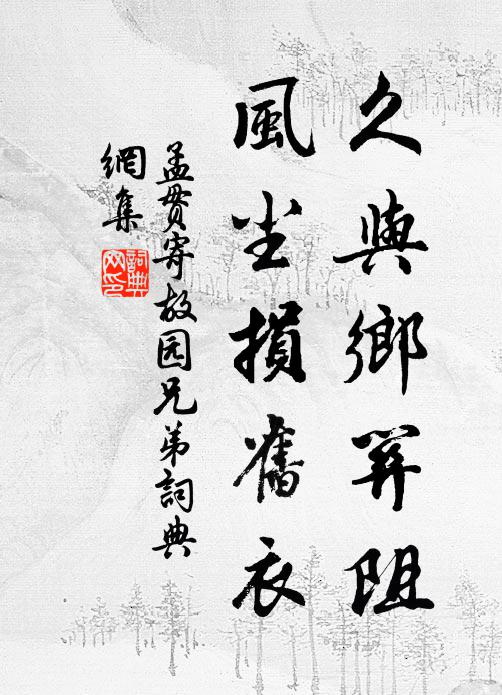 久與鄉關阻
風尘損舊衣
孟贯寄故园兄弟詞典
網集
詞典网印